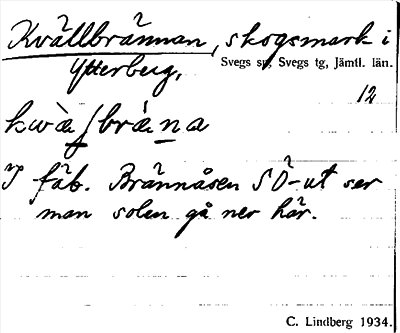 Kvällbrännan, skogsmark i
Ytterberg,
Svegs sn, Svegs tg, Jämtl. län.
12
I fäb. Brännåsen SÖ-ut ser
man solen gå ner här.
C. Lindberg 1934.